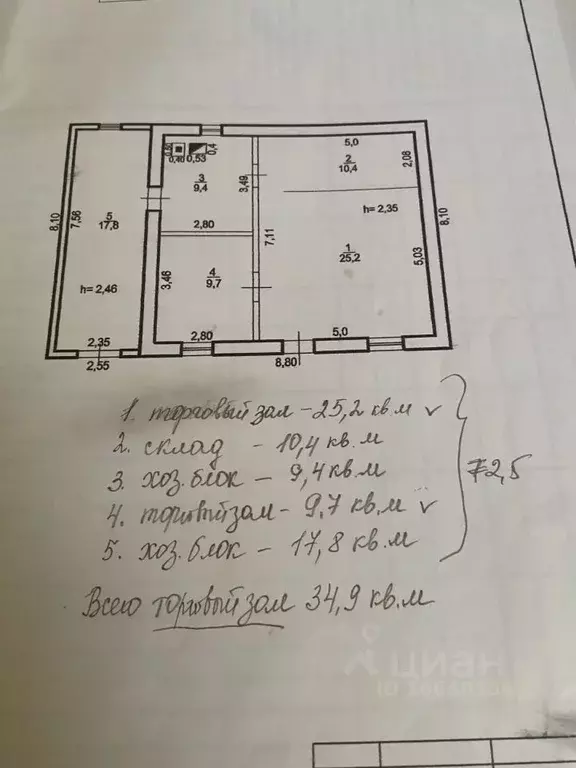 5,0
0,55 0,40 0,53 0,4
2
10,4
2,08
3
9,4
3,49
h= 2,35
5
17,8
8,10
7,56
2,80
7,11
1
25,2
5,03
8,10
4
9,7
3,46
h= 2,46
2,35
2,80
5,0
2,55
8,80
1. торговый зал - 25,2 кв.м ✓
2. склад - 10,4 кв.м
3. хоз.блок - 9,4 кв.м
72,5
4. торговый зал - 9,7 кв.м ✓
5. хоз.блок - 17,8 кв.м
Всего торговый зал 34,9 кв.м